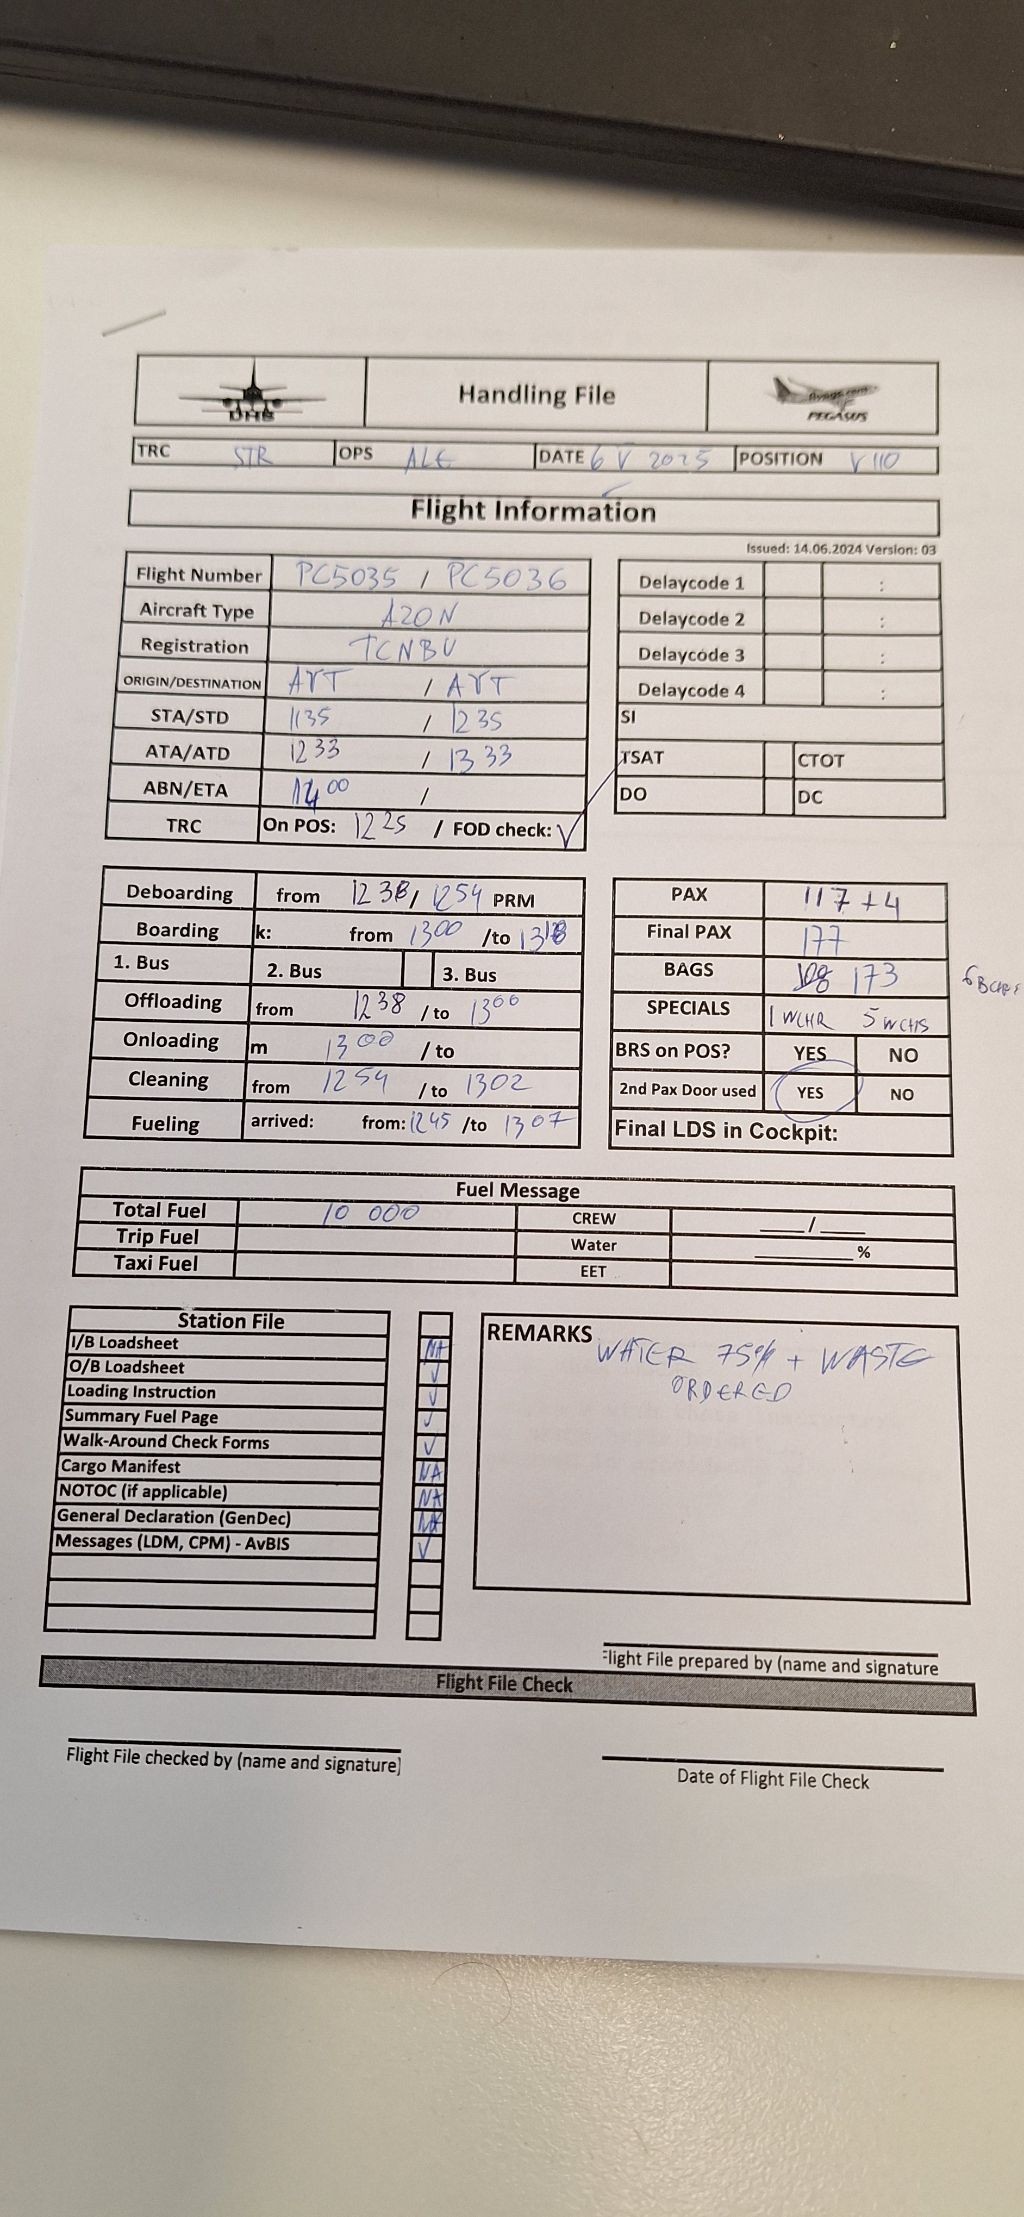 DHS
Handling File
flypgs.com
PEGASUS
TRC STR OPS ALE DATE 6 V 2025 POSITION V110
Flight Information
Issued: 14.06.2024 Version: 03
Flight Number PC5035 / PC5036
Aircraft Type A20N
Registration TCNBU
ORIGIN/DESTINATION AYT / AYT
STA/STD 1135 / 1235
ATA/ATD 1233 / 1333
ABN/ETA 1400 /
TRC On POS: 1225 / FOD check: √
Delaycode 1 :
Delaycode 2 :
Delaycode 3 :
Delaycode 4 :
SI
TSAT CTOT
DO DC
Deboarding from 1238 / 1254 PRM
Boarding k: from 1300 /to 1318
1. Bus 2. Bus 3. Bus
Offloading from 1238 / to 1300
Onloading m 1300 / to
Cleaning from 1254 / to 1302
Fueling arrived: from: 1245 /to 1307
PAX 117+4
Final PAX 177
BAGS 173
SPECIALS 1 WCHR 5 WCHS
BRS on POS? YES NO
2nd Pax Door used YES NO
Final LDS in Cockpit:
Fuel Message
Total Fuel 10 000 CREW ___/___
Trip Fuel Water ______%
Taxi Fuel EET
Station File
I/B Loadsheet NA
O/B Loadsheet √
Loading Instruction √
Summary Fuel Page √
Walk-Around Check Forms √
Cargo Manifest NA
NOTOC (if applicable) NA
General Declaration (GenDec) NA
Messages (LDM, CPM) - AvBIS √
REMARKS WATER 75% + WASTE
ORDERED
Flight File prepared by (name and signature
Flight File Check
Flight File checked by (name and signature)
Date of Flight File Check